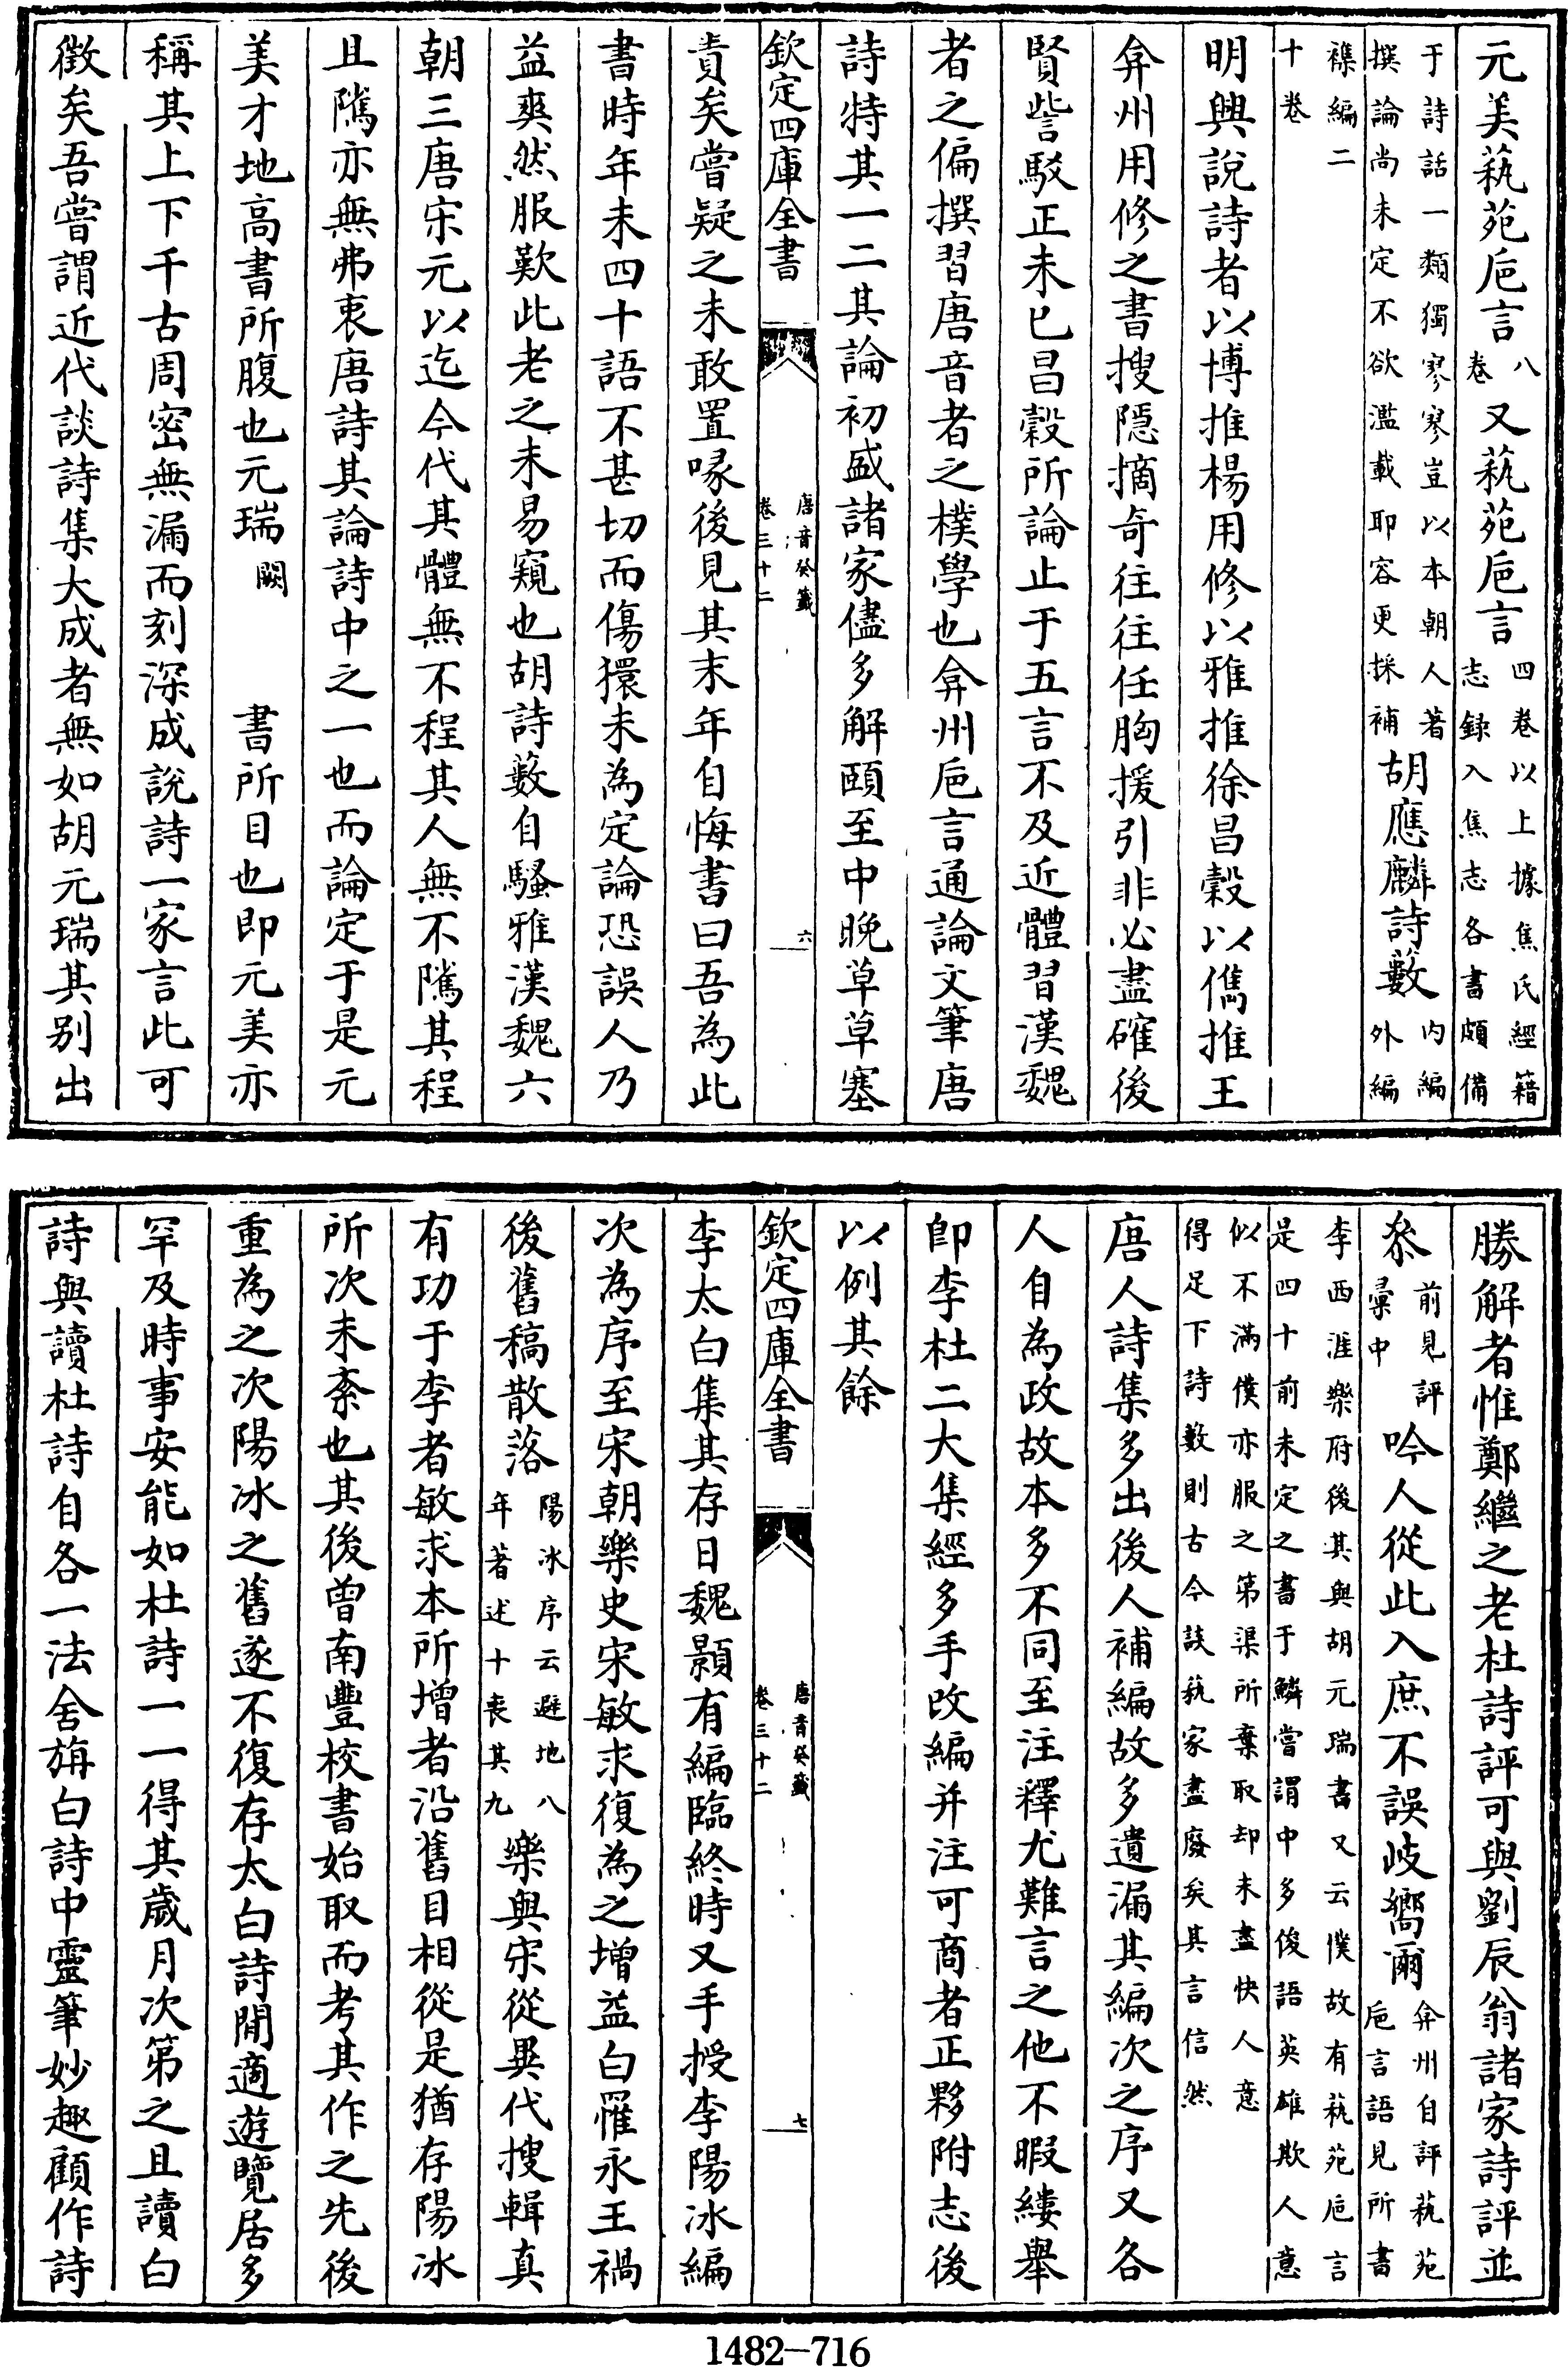 元美蓺苑巵言八卷又蓺苑巵言四卷以上據焦氏經籍志録入焦志各書頗備
于詩話一類獨寥寥豈以本朝人著撰論尚未定不欲濫載耶容更採補胡應麟詩藪内編外編
襍編二十卷
明興說詩者以博推楊用修以雅推徐昌穀以儁推王
弇州用修之書搜隠摘奇往往任胸援引非必盡確後
賢訾駁正未已昌穀所論止于五言不及近體習漢魏
者之偏撰習唐音者之樸學也弇州巵言通論文筆唐
詩特其一二其論初盛諸家儘多解頤至中晚草草塞
欽定四庫全書 唐音癸籤卷三十二 六
責矣嘗疑之未敢置喙後見其末年自悔書曰吾為此
書時年未四十語不甚切而傷獧未為定論恐誤人乃
益爽然服歎此老之未易窺也胡詩藪自騷雅漢魏六
朝三唐宋元以迄今代其體無不程其人無不隲其程
且隲亦無弗衷唐詩其論詩中之一也而論定于是元
美才地高書所腹也元瑞闕書所目也即元美亦
稱其上下千古周密無漏而刻深成說詩一家言此可
徵矣吾嘗謂近代談詩集大成者無如胡元瑞其別出
勝解者惟鄭繼之老杜詩評可與劉辰翁諸家詩評並
叅前見評彙中吟人從此入庶不誤岐嚮爾弇州自評蓺苑巵言語見所書
李西涯樂府後其與胡元瑞書又云僕故有蓺苑巵言是四十前未定之書于鱗嘗謂中多俊語英雄欺人意
似不滿僕亦服之第渠所棄取却未盡快人意得足下詩藪則古今談蓺家盡廢矣其言信然
唐人詩集多出後人補編故多遺漏其編次之序又各
人自為政故本多不同至注釋尤難言之他不暇縷舉
即李杜二大集經多手改編并注可商者正夥附志後
以例其餘
欽定四庫全書 唐音癸籤卷三十二 七
李太白集其存日魏顥有編臨終時又手授李陽冰編
次為序至宋朝樂史宋敏求復為之增益白罹永王禍
後舊稿散落陽冰序云避地八年著述十喪其九樂與宋從異代搜輯真
有功于李者敏求本所增者沿舊目相從是猶存陽冰
所次未紊也其後曾南豐校書始取而考其作之先後
重為之次陽冰之舊遂不復存太白詩閒適遊覽居多
罕及時事安能如杜詩一一得其歲月次第之且讀白
詩與讀杜詩自各一法舍旃白詩中靈筆妙趣顧作詩
1482-716